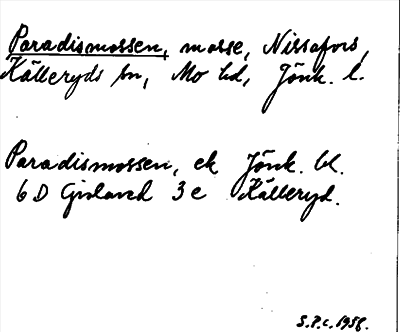 Paradismossen, mosse, Nissafors,
Källeryds sn, Mo hd, Jönk. l.
Paradismossen, ek Jönk. bl.
6 D Gislaved 3 e Källeryd.
S.P.C. 1958.